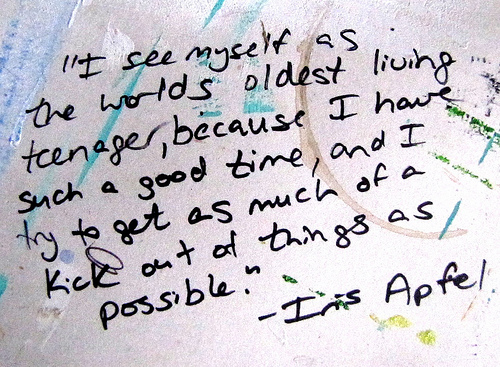 "I see myself as
the worlds oldest living
teenager, because I have
such a good time, and I
try to get as much of a
kick out of things as
possible."
-Iris Apfel